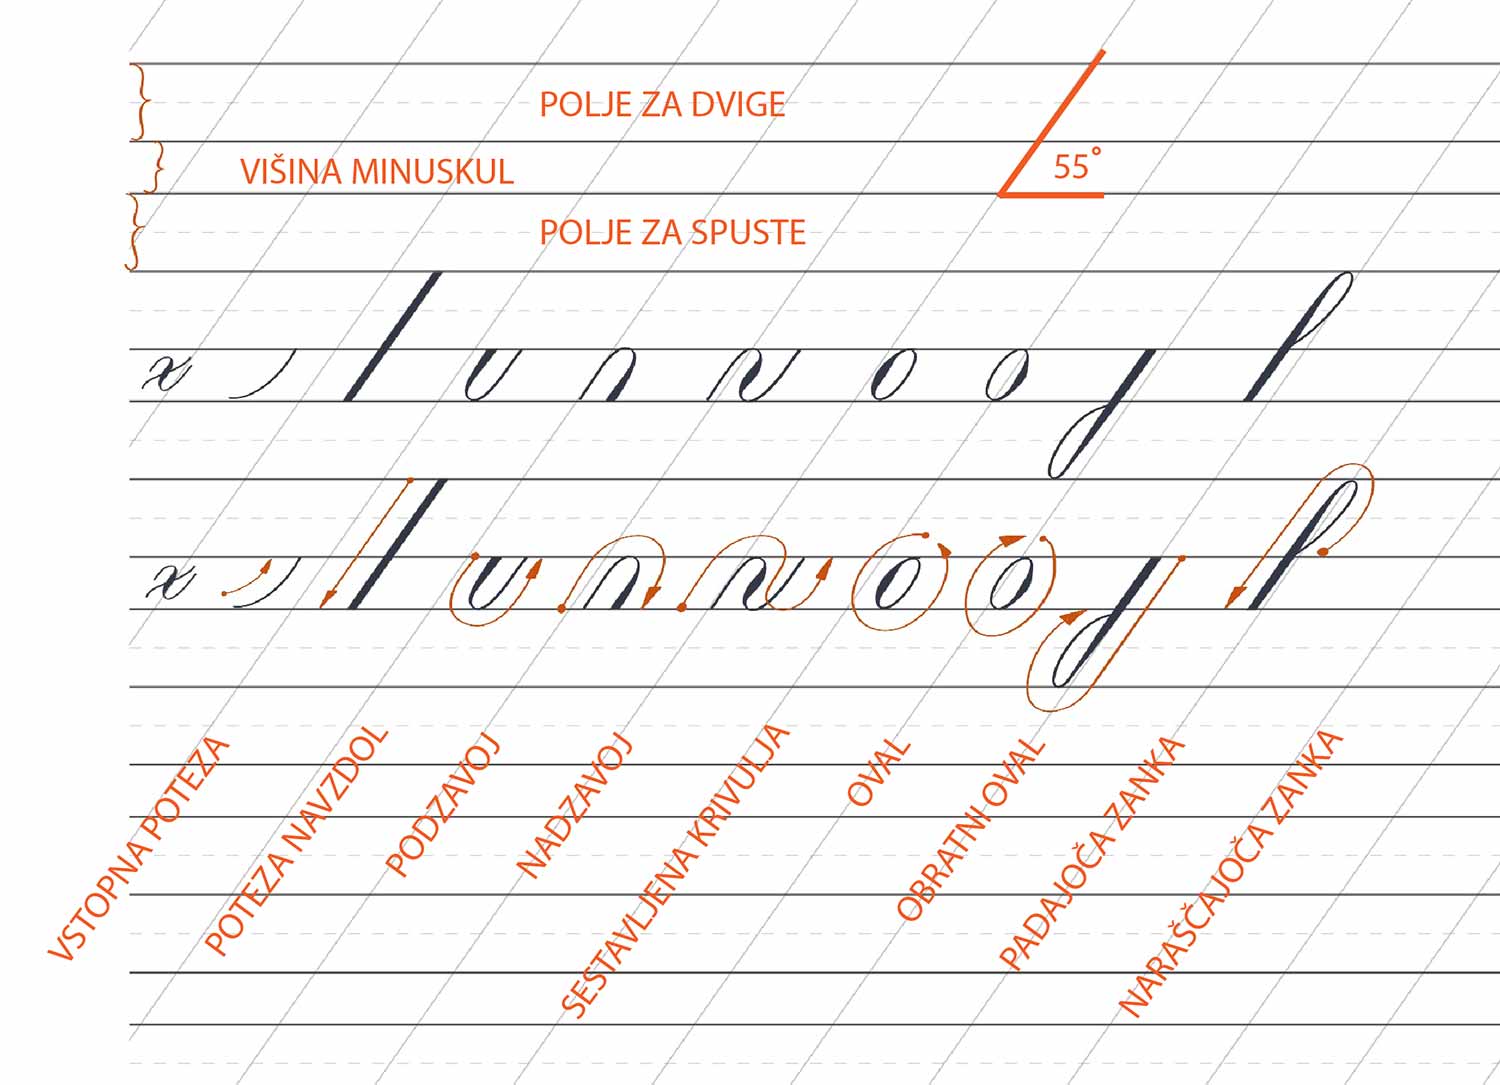 POLJE ZA DVIGE
VIŠINA MINUSKUL
55°
POLJE ZA SPUSTE
x
x
VSTOPNA POTEZA
POTEZA NAVZDOL
PODZAVOJ
NADZAVOJ
SESTAVLJENA KRIVULJA
OVAL
OBRATNI OVAL
PADAJOČA ZANKA
NARAŠČAJOČA ZANKA